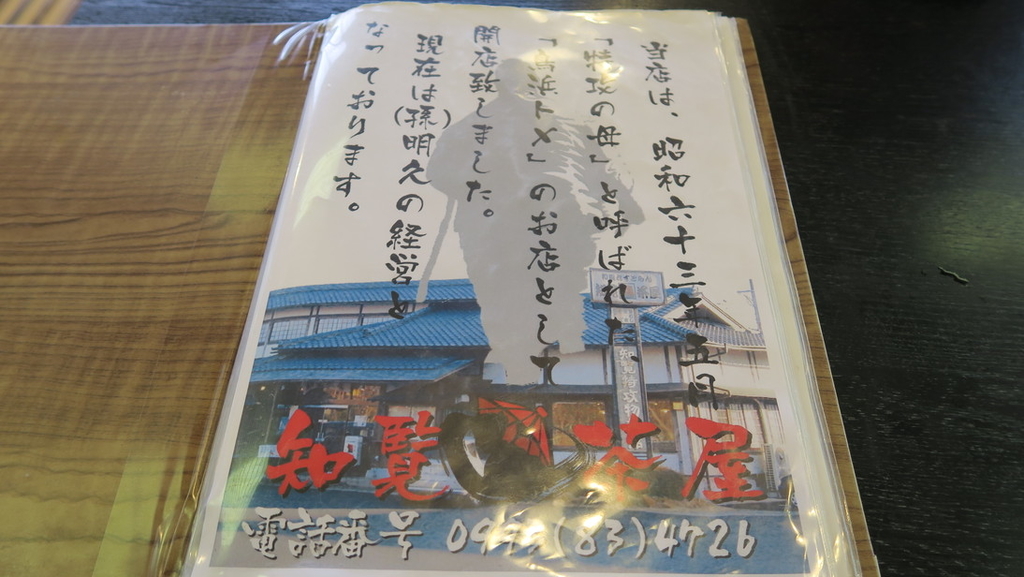 当店は、昭和六十三年五月
「特攻の母」と呼ばれた、
「鳥浜トメ」のお店として
開店致しました。
現在は(孫)明久の経営と
なっております。
知覧茶屋
電話番号 0993(83)4726